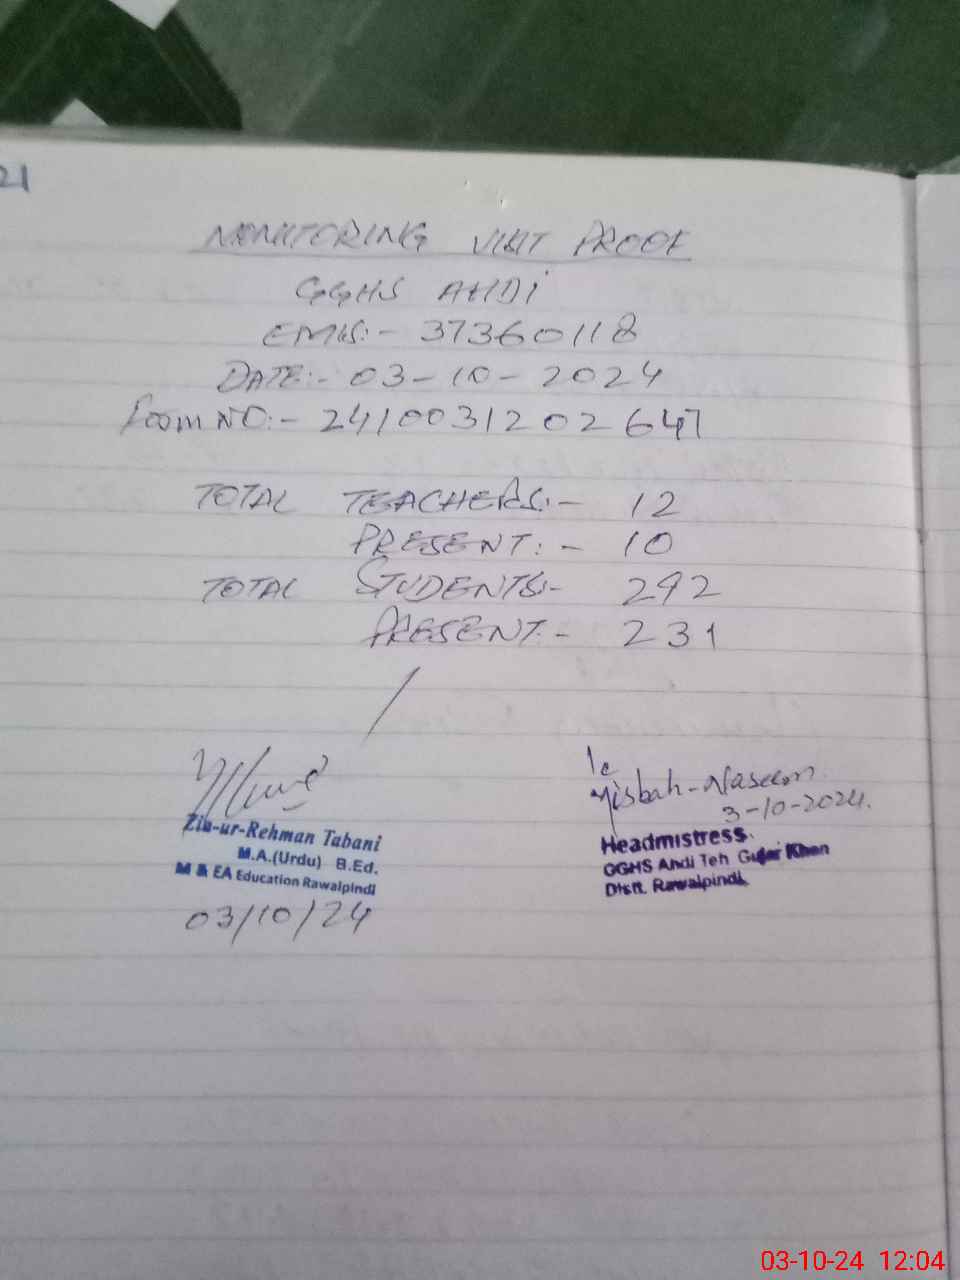 21
MONITORING VISIT PROOF
GGHS AHDI
EMIS:- 37360118
DATE:- 03-10-2024
FORM NO:- 2410031202647
TOTAL TEACHERS:- 12
PRESENT:- 10
TOTAL STUDENTS:- 292
PRESENT:- 231
Zia-ur-Rehman Tabani
M.A.(Urdu) B.Ed.
M & EA Education Rawalpindi
03/10/24
Misbah-Naseem
3-10-2024.
Headmistress.
GGHS Ahdi Teh Gujar Khan
Distt. Rawalpindi.
03-10-24 12:04